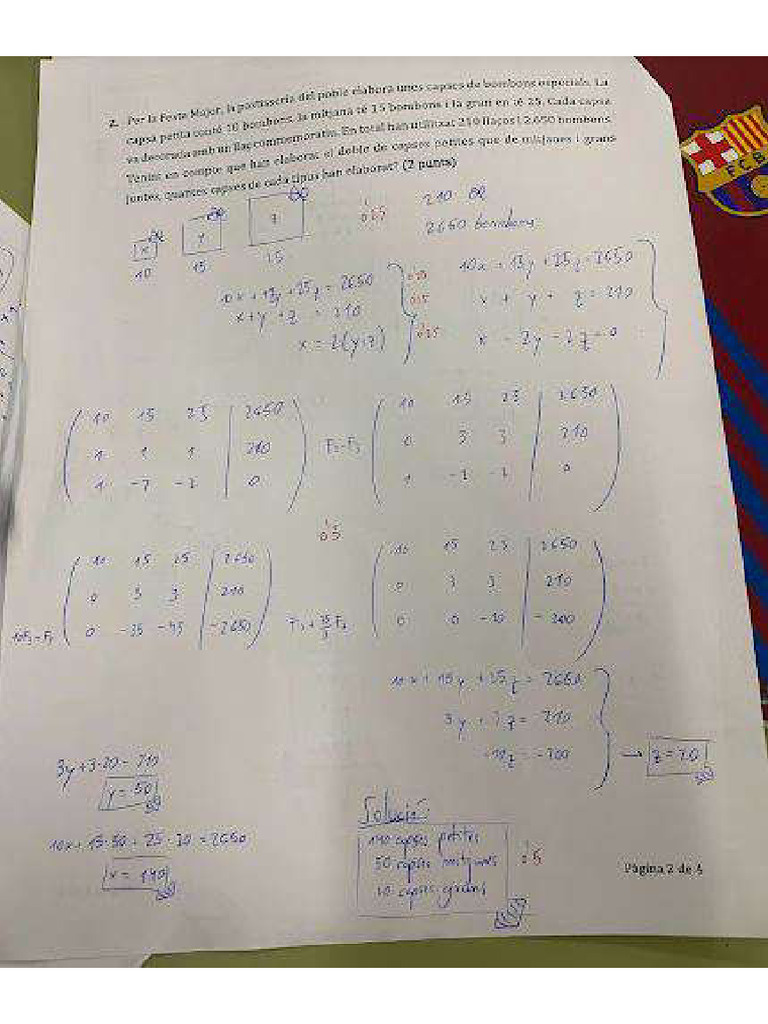 2. Per la Festa Major, la pastisseria del poble elabora unes capses de bombons especials. La
capsa petita conté 10 bombons, la mitjana té 15 bombons i la gran en té 25. Cada capsa
va decorada amb un llaç commemoratiu. En total han utilitzat 210 llaços i 2.650 bombons.
Tenint en compte que han elaborat el doble de capses petites que de mitjanes i grans
juntes, quantes capses de cada tipus han elaborat? (2 punts)
x y z
10 15 15
0'25
210
2650 bombons
10x + 15y + 25z = 2650
x + y + z = 210
x = 2(y+z)
0'25
0'25
0'25
10x + 15y + 25z = 2650
x + y + z = 210
x - 2y - 2z = 0
10 15 25 | 2650
1 1 1 | 210
1 -2 -2 | 0
F2-F3
10 15 25 | 2650
0 3 3 | 210
1 -2 -2 | 0
0'5
10F3-F1
10 15 25 | 2650
0 3 3 | 210
0 -35 -45 | -2650
F3 + 35/3 F2
10 15 25 | 2650
0 3 3 | 210
0 0 -10 | -200
10x + 15y + 25z = 2650
3y + 3z = 210
-10z = -200
→ z = 20
3y + 3·20 = 210
y = 50
10x + 15·50 + 25·20 = 2650
x = 140
Solució:
140 capses petites
50 capses mitjanes
20 capses grans
0'5
Pàgina 2 de 4
FCB